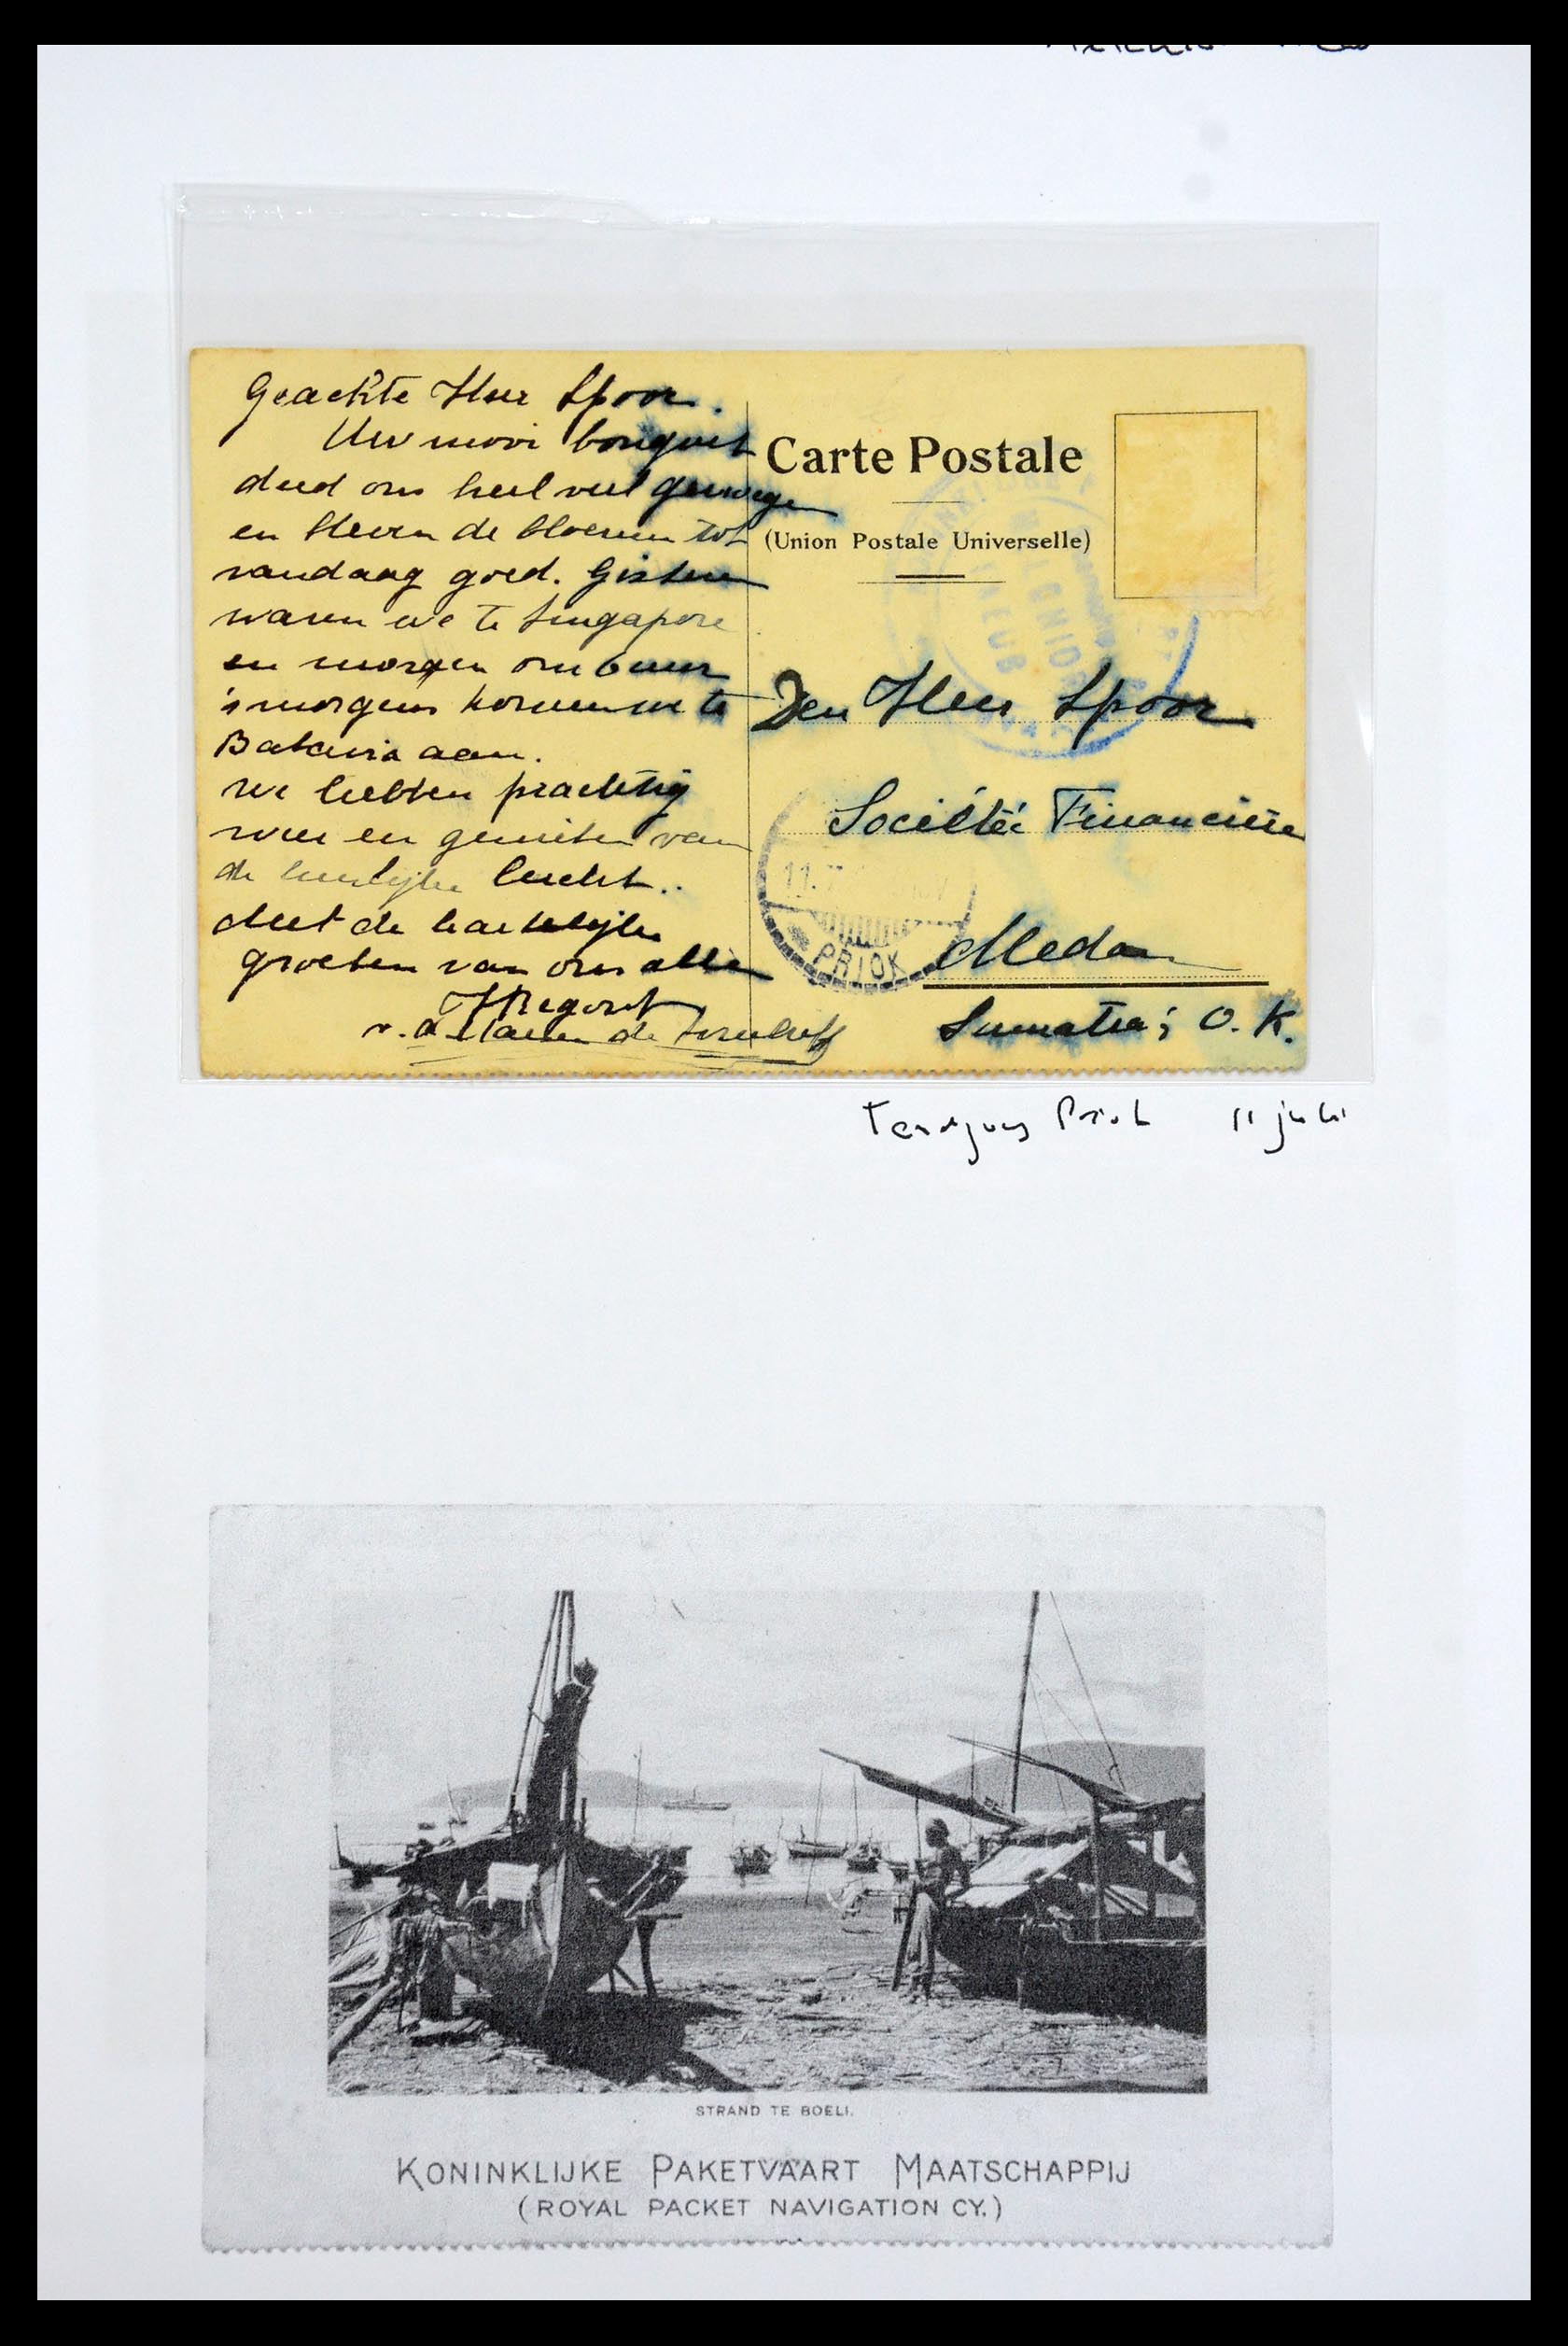 Geachte Heer Spoor.
Uw mooi bouquet
deed ons heel veel genoegen
en bleven de bloemen tot
vandaag goed. Gisteren
waren we te Singapore
en morgen om 6 uur
's morgens komen we te
Batavia aan.
We hebben prachtig
weer en genieten van
de heerlijke lucht..
Met de hartelijke
groeten van ons allen
v. d.
Carte Postale
(Union Postale Universelle)
Den Heer Spoor
Société Financière
Medan
Sumatra; O. K.
11.7
PRIOK
Tandjong Priok 11 juli
STRAND TE BOELI.
KONINKLIJKE PAKETVAART MAATSCHAPPIJ
(ROYAL PACKET NAVIGATION CY.)